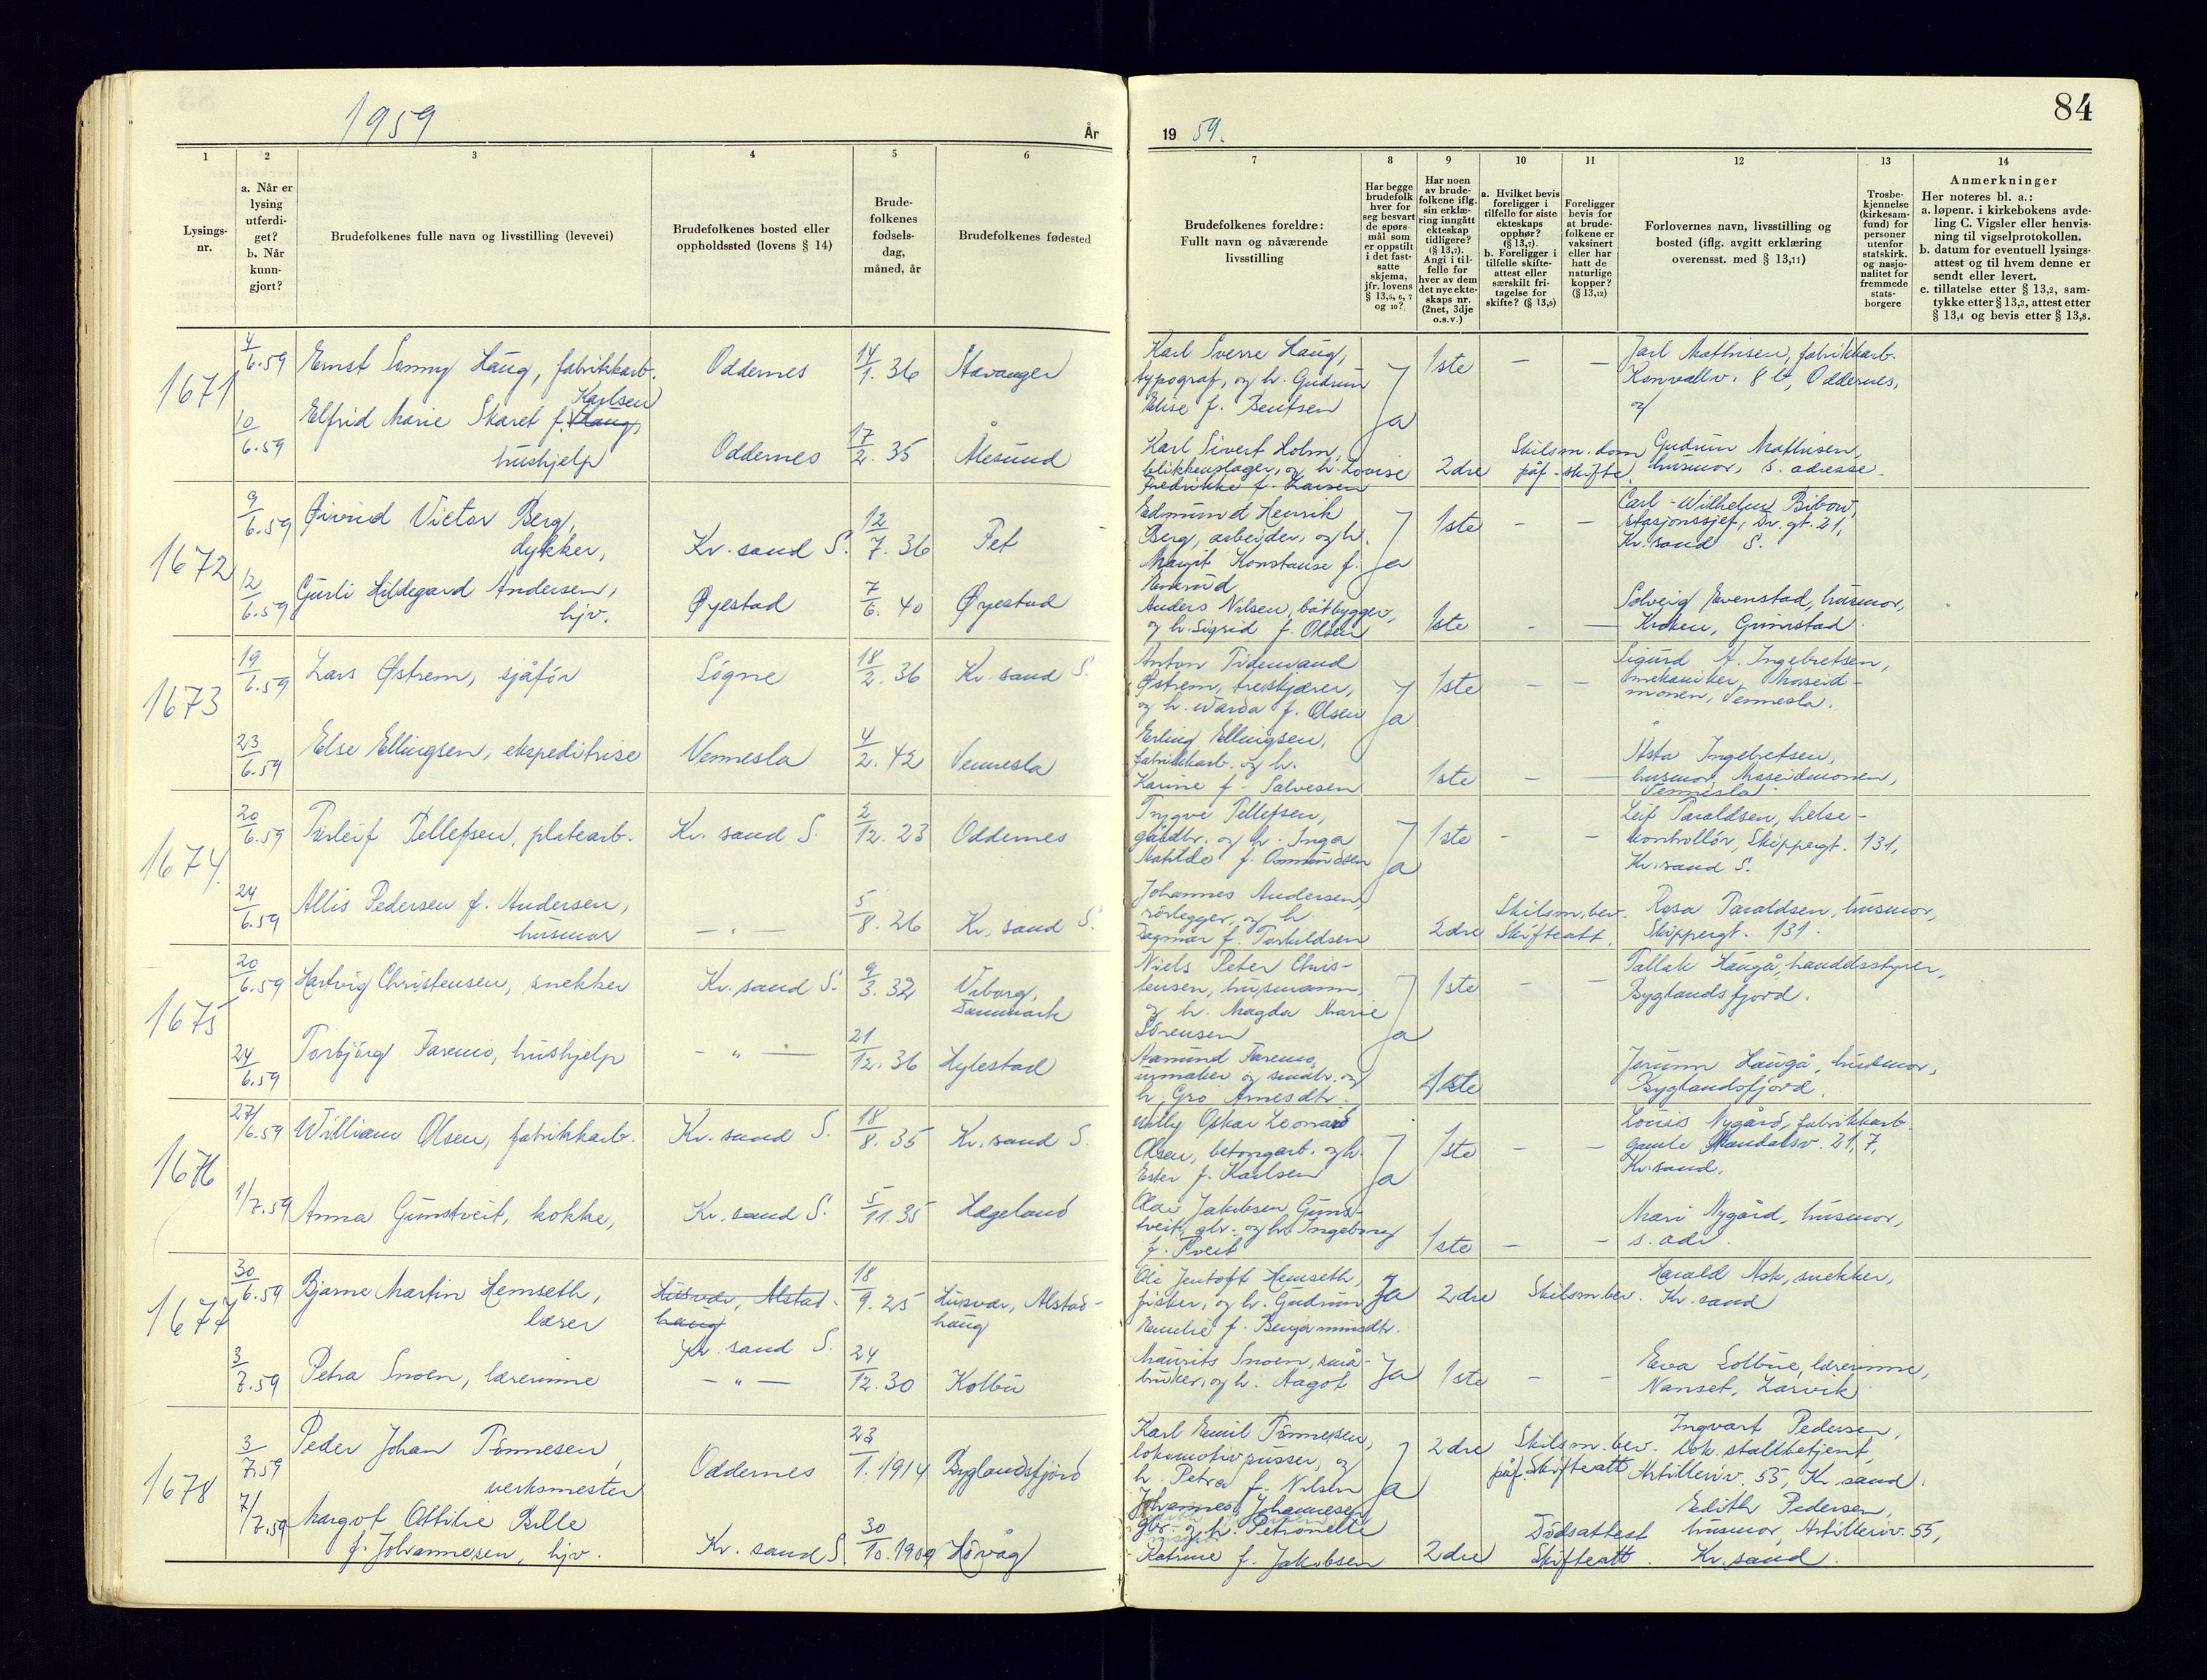 84
1959
År
19 59.
1
2
3
4
5
6
7
8
9
10
11
12
13
14
Lysings-
nr.
a. Når er
lysing
utferdi-
get?
b. Når
kunn-
gjort?
Brudefolkenes fulle navn og livsstilling (levevei)
Brudefolkenes bosted eller
oppholdssted (lovens § 14)
Brude-
folkenes
fødsels-
dag,
måned, år
Brudefolkenes fødested
Brudefolkenes foreldre:
Fullt navn og nåværende
livsstilling
Har begge
brudefolk
hver for
seg besvart
de spørs-
mål som
er oppstilt
i det fast-
satte
skjema,
jfr. lovens
§ 13,5, 6, 7
og 10?
Har noen
av brude-
folkene iflg.
sin erklæ-
ring inngått
ekteskap
tidligere?
(§ 13,7).
Angi i til-
felle for
hver av dem
det nye ekte-
skaps nr.
(2net, 3dje
o.s.v.)
a. Hvilket bevis
foreligger i
tilfelle for siste
ekteskaps
opphør?
(§ 13,7).
b. Foreligger i
tilfelle skifte-
attest eller
særskilt fri-
tagelse for
skifte? (§ 13,9)
Foreligger
bevis for
at brude-
folkene er
vaksinert
eller har
hatt de
naturlige
kopper?
(§ 13,12)
Forlovernes navn, livsstilling og
bosted (iflg. avgitt erklæring
overensst. med § 13,11)
Trosbe-
kjennelse
(kirkesam-
fund) for
personer
utenfor
statskirk.
og nasjo-
nalitet for
fremmede
stats-
borgere
Anmerkninger
Her noteres bl. a.:
a. løpenr. i kirkebokens avde-
ling C. Vigsler eller henvis-
ning til vigselprotokollen.
b. datum for eventuell lysings-
attest og til hvem denne er
sendt eller levert.
c. tillatelse etter § 13,2, sam-
tykke etter § 13,3, attest etter
§ 13,4 og bevis etter § 13,8.
1671
4/6.59
Ernst Sonny Haug, fabrikkarb.
Oddernes
14/1. 36
Stavanger
Karl Sverre Haug,
typograf, og h. Gudrun
Elise f. Bentsen
Ja
1ste
—
—
Jarl Mathisen, fabrikkarb.
Konvallv. 8 b, Oddernes,
og
10/6.59
Karlsen
Elfrid Marie Skaret f. Haug,
hushjelp
Oddernes
17/2. 35
Ålesund
Karl Sivert Holm,
blikkenslager, og h. Lovise
Fredrikke f. Larsen
2dre
Skilsm. dom
påf. skifte.
Gudrun Mathisen,
husmor, s. adresse.
1672
9/6.59
Øivind Victor Berg,
dykker,
Kr. sand S.
12/7. 36
Fet
Edmund Henrik
Berg, arbeider, og h.
Margit Konstanse f.
Enerud
Ja
1ste
-
-
Carl-Wilhelm Bibow,
stasjonssjef, Dr. gt. 21,
Kr. sand S.
12/6.59
Gurli Hildegard Andersen,
hjv.
Øyestad
7/6. 40
Øyestad
Anders Nilsen, båtbygger,
og h. Sigrid f. Olsen
1ste
-
—
Solveig Evenstad, husmor,
Kroken, Grimstad.
1673
19/6.59
Lars Østrem, sjåfør
Søgne
18/2. 36
Kr. sand S.
Anton Tidemand
Østrem, treskjærer,
og h. Warda f. Olsen
Ja
1ste
-
-
Sigurd A. Ingebretsen,
mekaniker, Moseid-
monen, Vennesla.
23/6.59
Else Ellingsen, ekspeditrise
Vennesla
4/2. 42
Vennesla
Erling Ellingsen,
fabrikkarb. og h.
Karine f. Salvesen
1ste
-
—
Åsta Ingebretsen,
husmor, Moseidmonen,
Vennesla.
1674
20/6.59
Torleif Tellefsen, platearb.
Kr. sand S.
2/12. 23
Oddernes
Trygve Tellefsen,
gårdbr. og h. Inga
Matilde f. Osmundsen
Ja
1ste
-
-
Leif Taraldsen, helse-
kontrollør, Skippergt. 131,
Kr. sand S.
24/6.59
Allis Pedersen f. Andersen,
husmor
— " —
5/8. 26
Kr. sand S.
Johannes Andersen,
rørlegger, og h.
Dagmar f. Torkildsen
2dre
Skilsm. bev.
Skifteatt.
Rosa Taraldsen, husmor,
Skippergt. 131.
1675
20/6.59
Hartvig Christensen, snekker
Kr. sand S.
9/3. 32
Viborg,
Danmark
Niels Peter Chris-
tensen, husmann,
og h. Magda Marie
Sørensen
Ja
1ste
-
-
Tallak Haugå, handelsstyrer,
Byglandsfjord.
24/6.59
Torbjørg Faremo, hushjelp
— " —
21/12. 36
Hylestad
Aamund Faremo,
urmaker og småbr. og
h. Gro Arnesdtr.
1ste
Jorunn Haugå, husmor,
Byglandsfjord.
1676
27/6.59
William Olsen, fabrikkarb.
Kr. sand S.
18/8. 35
Kr. sand S.
Willy Oskar Leonard
Olsen, betongarb. og h.
Ester f. Karlsen
Ja
1ste
-
-
Louis Nygård, fabrikkarb.
Gamle Mandalsv. 21, 7,
Kr. sand.
1/7.59
Anna Gunstveit, kokke,
Kr. sand S.
5/11. 35
Hægeland
Olav Jakobsen Gunst-
tveit, gbr. og h. Ingeborg
f. Tveit
1ste
-
-
Mari Nygård, husmor,
s. adr.
1677
30/6.59
Bjarne Martin Hemseth,
lærer
Husvær, Alstad-
haug
Kr. sand S.
18/9. 25
Husvær, Alstad-
haug
Ole Jentoft Hemseth,
fisker, og h. Gudrun
Emelie f. Benjaminsdtr.
Ja
2dre
Skilsm. bev.
Harald Ask, snekker,
Kr. sand
3/7.59
Petra Snoen, lærerinne
— " —
24/12. 30
Kolbu
Maurits Snoen, små-
bruker, og h. Aagot
Ja
1ste
-
-
Eva Solbue, lærerinne,
Nanset, Larvik
1678
3/7.59
Peder Johan Tønnesen,
verksmester
Oddernes
23/1. 1914
Byglandsfjord
Karl Emil Tønnesen,
lokomotivpusser, og
h. Petra f. Nilsen
Ja
2dre
Skilsm. bev.
påf. Skifteatt
Ingvart Pedersen,
lok. stallbetjent,
Artilleriv. 55, Kr. sand.
7/7.59
Margot Ottilie Bille
f. Johannesen, hjv.
Kr. sand S.
30/10. 1909
Høvåg
Johannes Johannesen
gbr. og h. Petronelle
Katrine f. Jakobsen
2dre
Dødsattest
Skifteatt.
Edith Pedersen,
husmor, Artilleriv. 55,
Kr. sand.